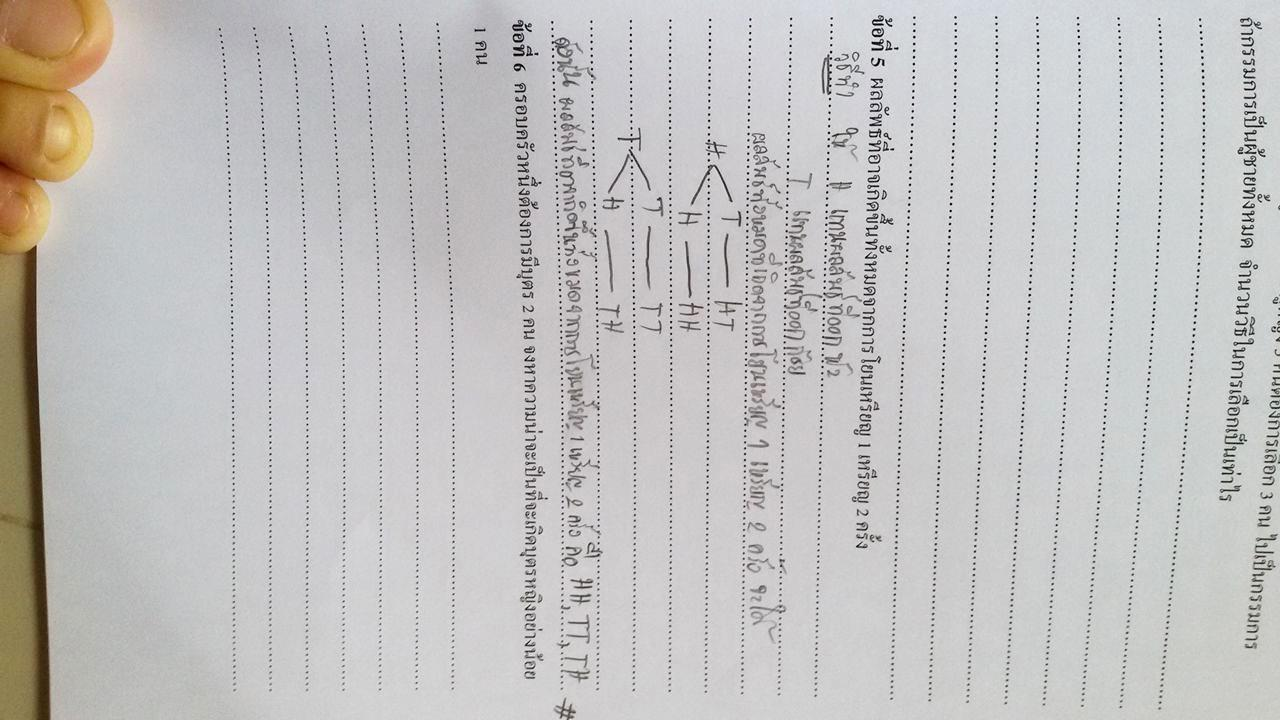 3 คน ไปเป็นกรรมการ
ถ้ากรรมการเป็นผู้ชายทั้งหมด จำนวนวิธีในการเลือกเป็นเท่าไร
ข้อที่ 5 ผลลัพธ์ที่อาจเกิดขึ้นทั้งหมดจากการโยนเหรียญ 1 เหรียญ 2 ครั้ง
วิธีทำ ให้ H แทนผลลัพธ์ที่ออก หัว
T แทนผลลัพธ์ที่ออก ก้อย
ผลลัพธ์ทั้งหมดที่เกิดจากการโยนเหรียญ 1 เหรียญ 2 ครั้ง จะได้
T — HT
H
H — HH
T — TT
T
H — TH
ดังนั้น ผลลัพธ์ที่อาจเกิดขึ้นทั้งหมดจากการโยนเหรียญ 1 เหรียญ 2 ครั้ง คือ HH, TT, TH #
ข้อที่ 6 ครอบครัวหนึ่งต้องการมีบุตร 2 คน จงหาความน่าจะเป็นที่จะเกิดบุตรหญิงอย่างน้อย
1 คน